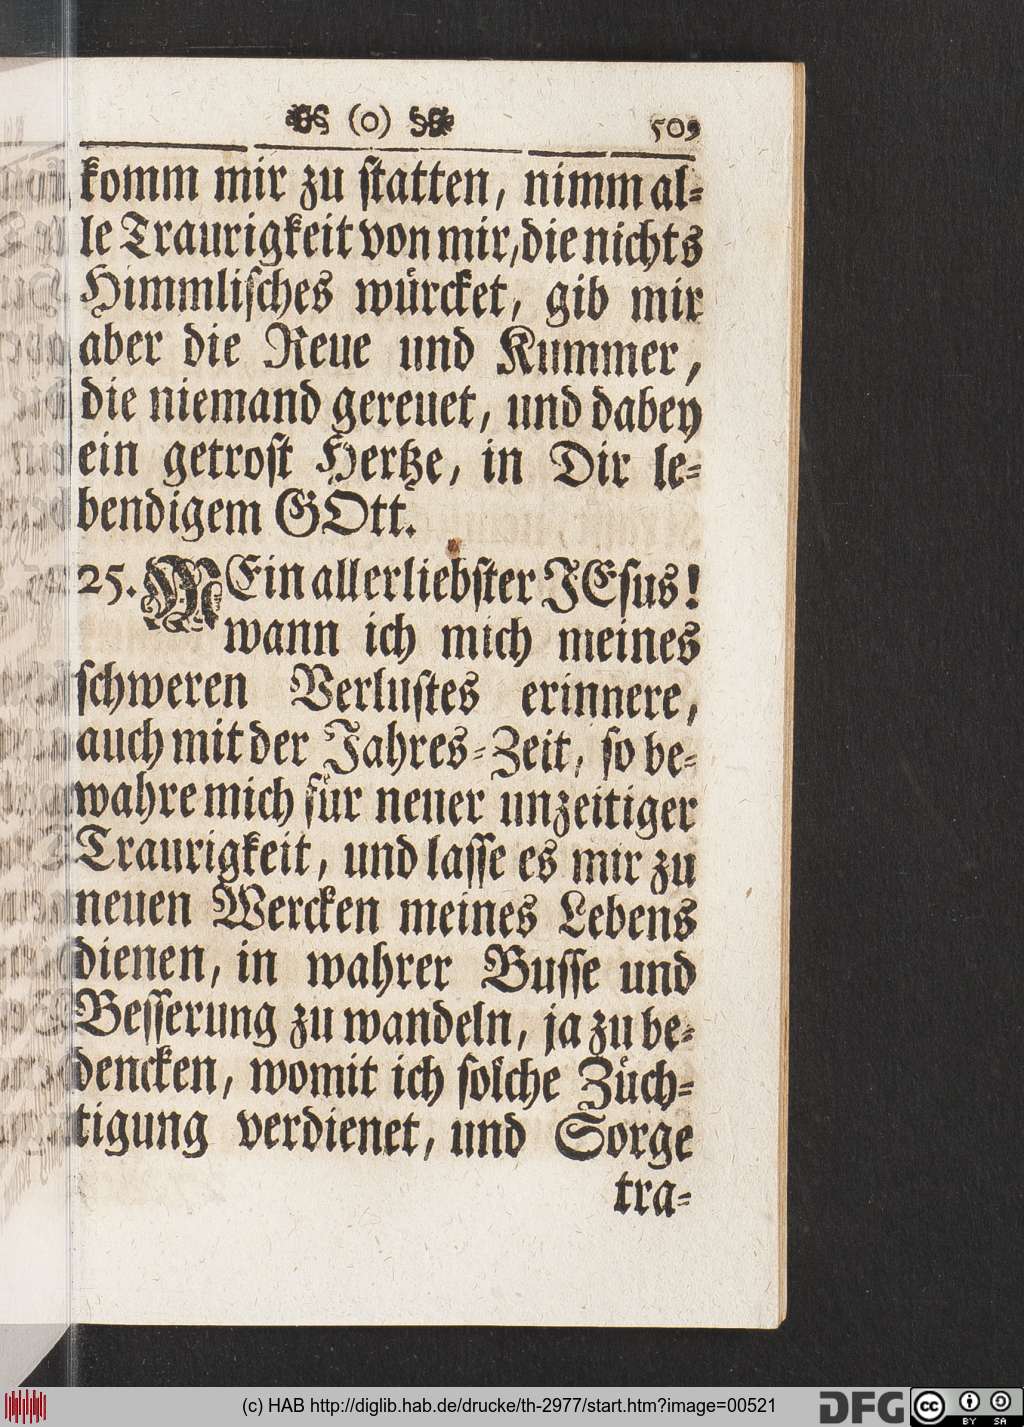 (o) 509
komm mir zu ſtatten, nimm al-
le Traurigkeit von mir, die nichts
Himmliſches würcket, gib mir
aber die Reue und Kummer,
die niemand gereuet, und dabey
ein getroſt Hertze, in Dir le-
bendigem GOtt.
25. MEin allerliebſter JEſus!
wann ich mich meines
ſchweren Verluſtes erinnere,
auch mit der Jahres-Zeit, ſo be-
wahre mich für neuer unzeitiger
Traurigkeit, und laſſe es mir zu
neuen Wercken meines Lebens
dienen, in wahrer Buſſe und
Beſſerung zu wandeln, ja zu be-
dencken, womit ich ſolche Züch-
tigung verdienet, und Sorge
tra-
(c) HAB http://diglib.hab.de/drucke/th-2977/start.htm?image=00521
DFG
cc BY SA